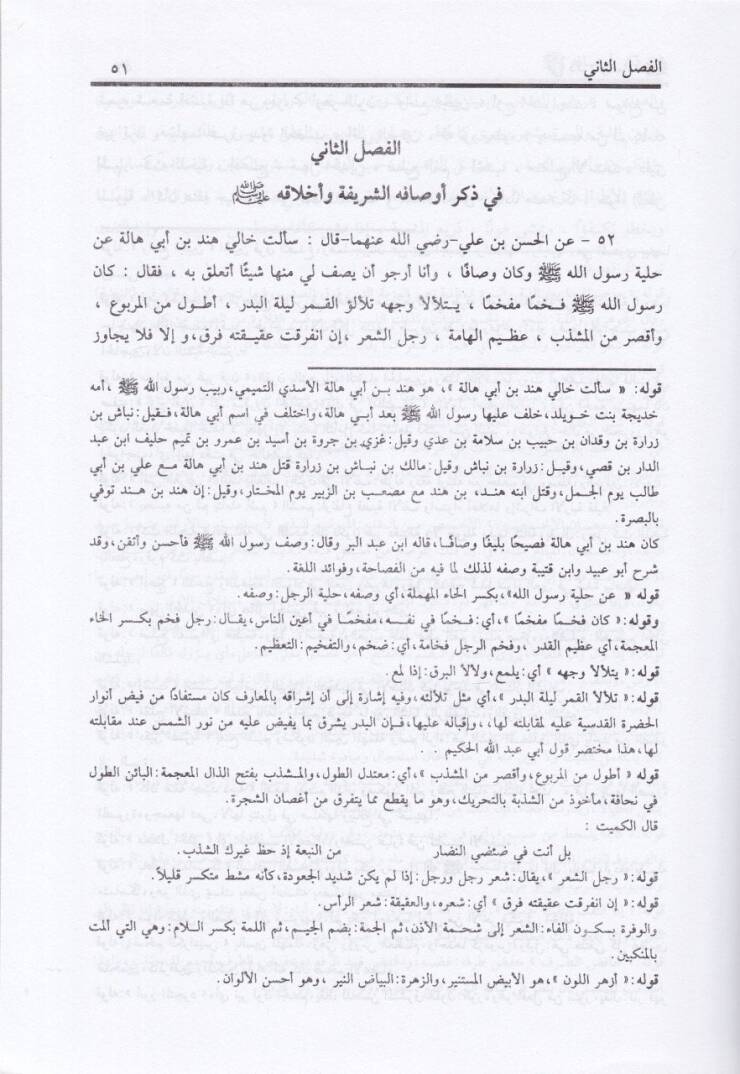 الفصل الثاني
٥١
الفصل الثاني
في ذكر أوصافه الشريفة وأخلاقه ﷺ
٥٢ - عن الحسن بن علي-رضي الله عنهما-قال : سألت خالي هند بن أبي هالة عن
حلية رسول الله ﷺ وكان وصافًا ، وأنا أرجو أن يصف لي منها شيئًا أتعلق به ، فقال : كان
رسول الله ﷺ فخمًا مفخمًا ، يتلألأ وجهه تلألؤ القمر ليلة البدر ، أطول من المربوع ،
وأقصر من المشذب ، عظيم الهامة ، رجل الشعر ، إن انفرقت عقيقته فرق، وإلا فلا يجاوز
قوله: « سألت خالي هند بن أبي هالة »، هو هند بن أبي هالة الأسدي التميمي، ربيب رسول الله ﷺ ، أمه
خديجة بنت خويلد، خلف عليها رسول الله ﷺ بعد أبي هالة، واختلف في اسم أبي هالة، فقيل: نباش بن
زرارة بن وقدان بن حبيب بن سلامة بن عدي وقيل: غزي بن جروة بن أسيد بن عمرو بن تميم حليف ابن عبد
الدار بن قصي، وقيل: زرارة بن نباش وقيل: مالك بن نباش بن زرارة قتل هند بن أبي هالة مع علي بن أبي
طالب يوم الجمل، وقتل ابنه هند، بن هند مع مصعب بن الزبير يوم المختار، وقيل: إن هند بن هند توفي
بالبصرة.
كان هند بن أبي هالة فصيحًا بليغًا وصافًا، قاله ابن عبد البر وقال: وصف رسول الله ﷺ فأحسن وأتقن، وقد
شرح أبو عبيد وابن قتيبة وصفه لذلك لما فيه من الفصاحة، وفوائد اللغة.
قوله « عن حلية رسول الله»، بكسر الحاء المهملة، أي وصفه، حلية الرجل: وصفه.
وقوله: « كان فخمًا مفخمًا »، أي: فخمًا في نفسه، مفخمًا في أعين الناس، يقال: رجل فخم بكسر الخاء
المعجمة، أي عظيم القدر ، وفخم الرجل فخامة، أي: ضخم، والتفخيم: التعظيم.
قوله: « يتلألأ وجهه » أي: يلمع، ولألأ البرق: إذا لمع
قوله: « تلألأ القمر ليلة البدر »، أي مثل تلألئه، وفيه إشارة إلى أن إشراقه بالمعارف كان مستفادًا من فيض أنوار
الحضرة القدسية عليه لمقابلته لها، ، وإقباله عليها، فإن البدر يشرق بما يفيض عليه من نور الشمس عند مقابلته
لها، هذا مختصر قول أبي عبد الله الحكيم . .
قوله « أطول من المربوع، وأقصر من المشذب »، أي: معتدل الطول، والمشذب بفتح الذال المعجمة: البائن الطول
في نحافة، مأخوذ من الشذبة بالتحريك، وهو ما يقطع مما يتفرق من أغصان الشجرة.
قال الكميت :
بل أنت في ضئضي النضار من النبعة إذ حظ غيرك الشذب.
قوله: « رجل الشعر »، يقال: شعر رجل ورجل: إذا لم يكن شديد الجعودة، كأنه مشط متكسر قليلاً.
قوله: « إن انفرقت عقيقته فرق » أي: شعره، والعقيقة: شعر الرأس.
والوفرة بسكون الفاء: الشعر إلى شحمة الأذن، ثم الجمة: بضم الجيم، ثم اللمة بكسر اللام: وهي التي ألمت
بالمنكبين.
قوله: « أزهر اللون »، هو الأبيض المستنير، والزهرة: البياض النير ، وهو أحسن الألوان.